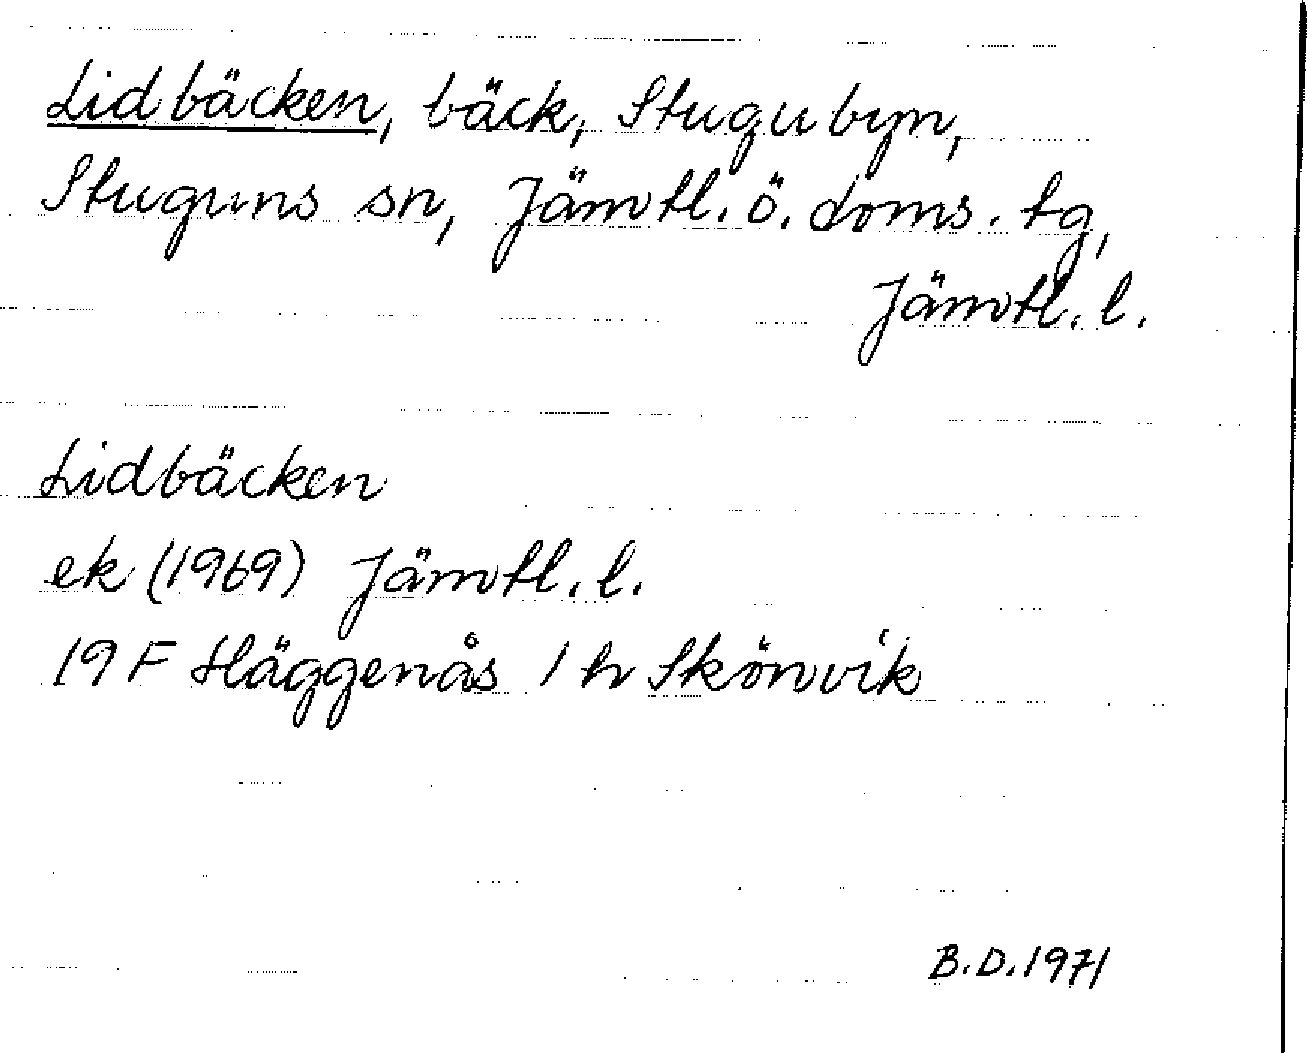 Lidbäcken, bäck, Stugubyn,
Stuguns sn, Jämtl. ö. doms. tg,
Jämtl. l.
Lidbäcken
ek (1969) Jämtl. l.
19 F Häggenås 1 h Skönvik
B.D. 1971